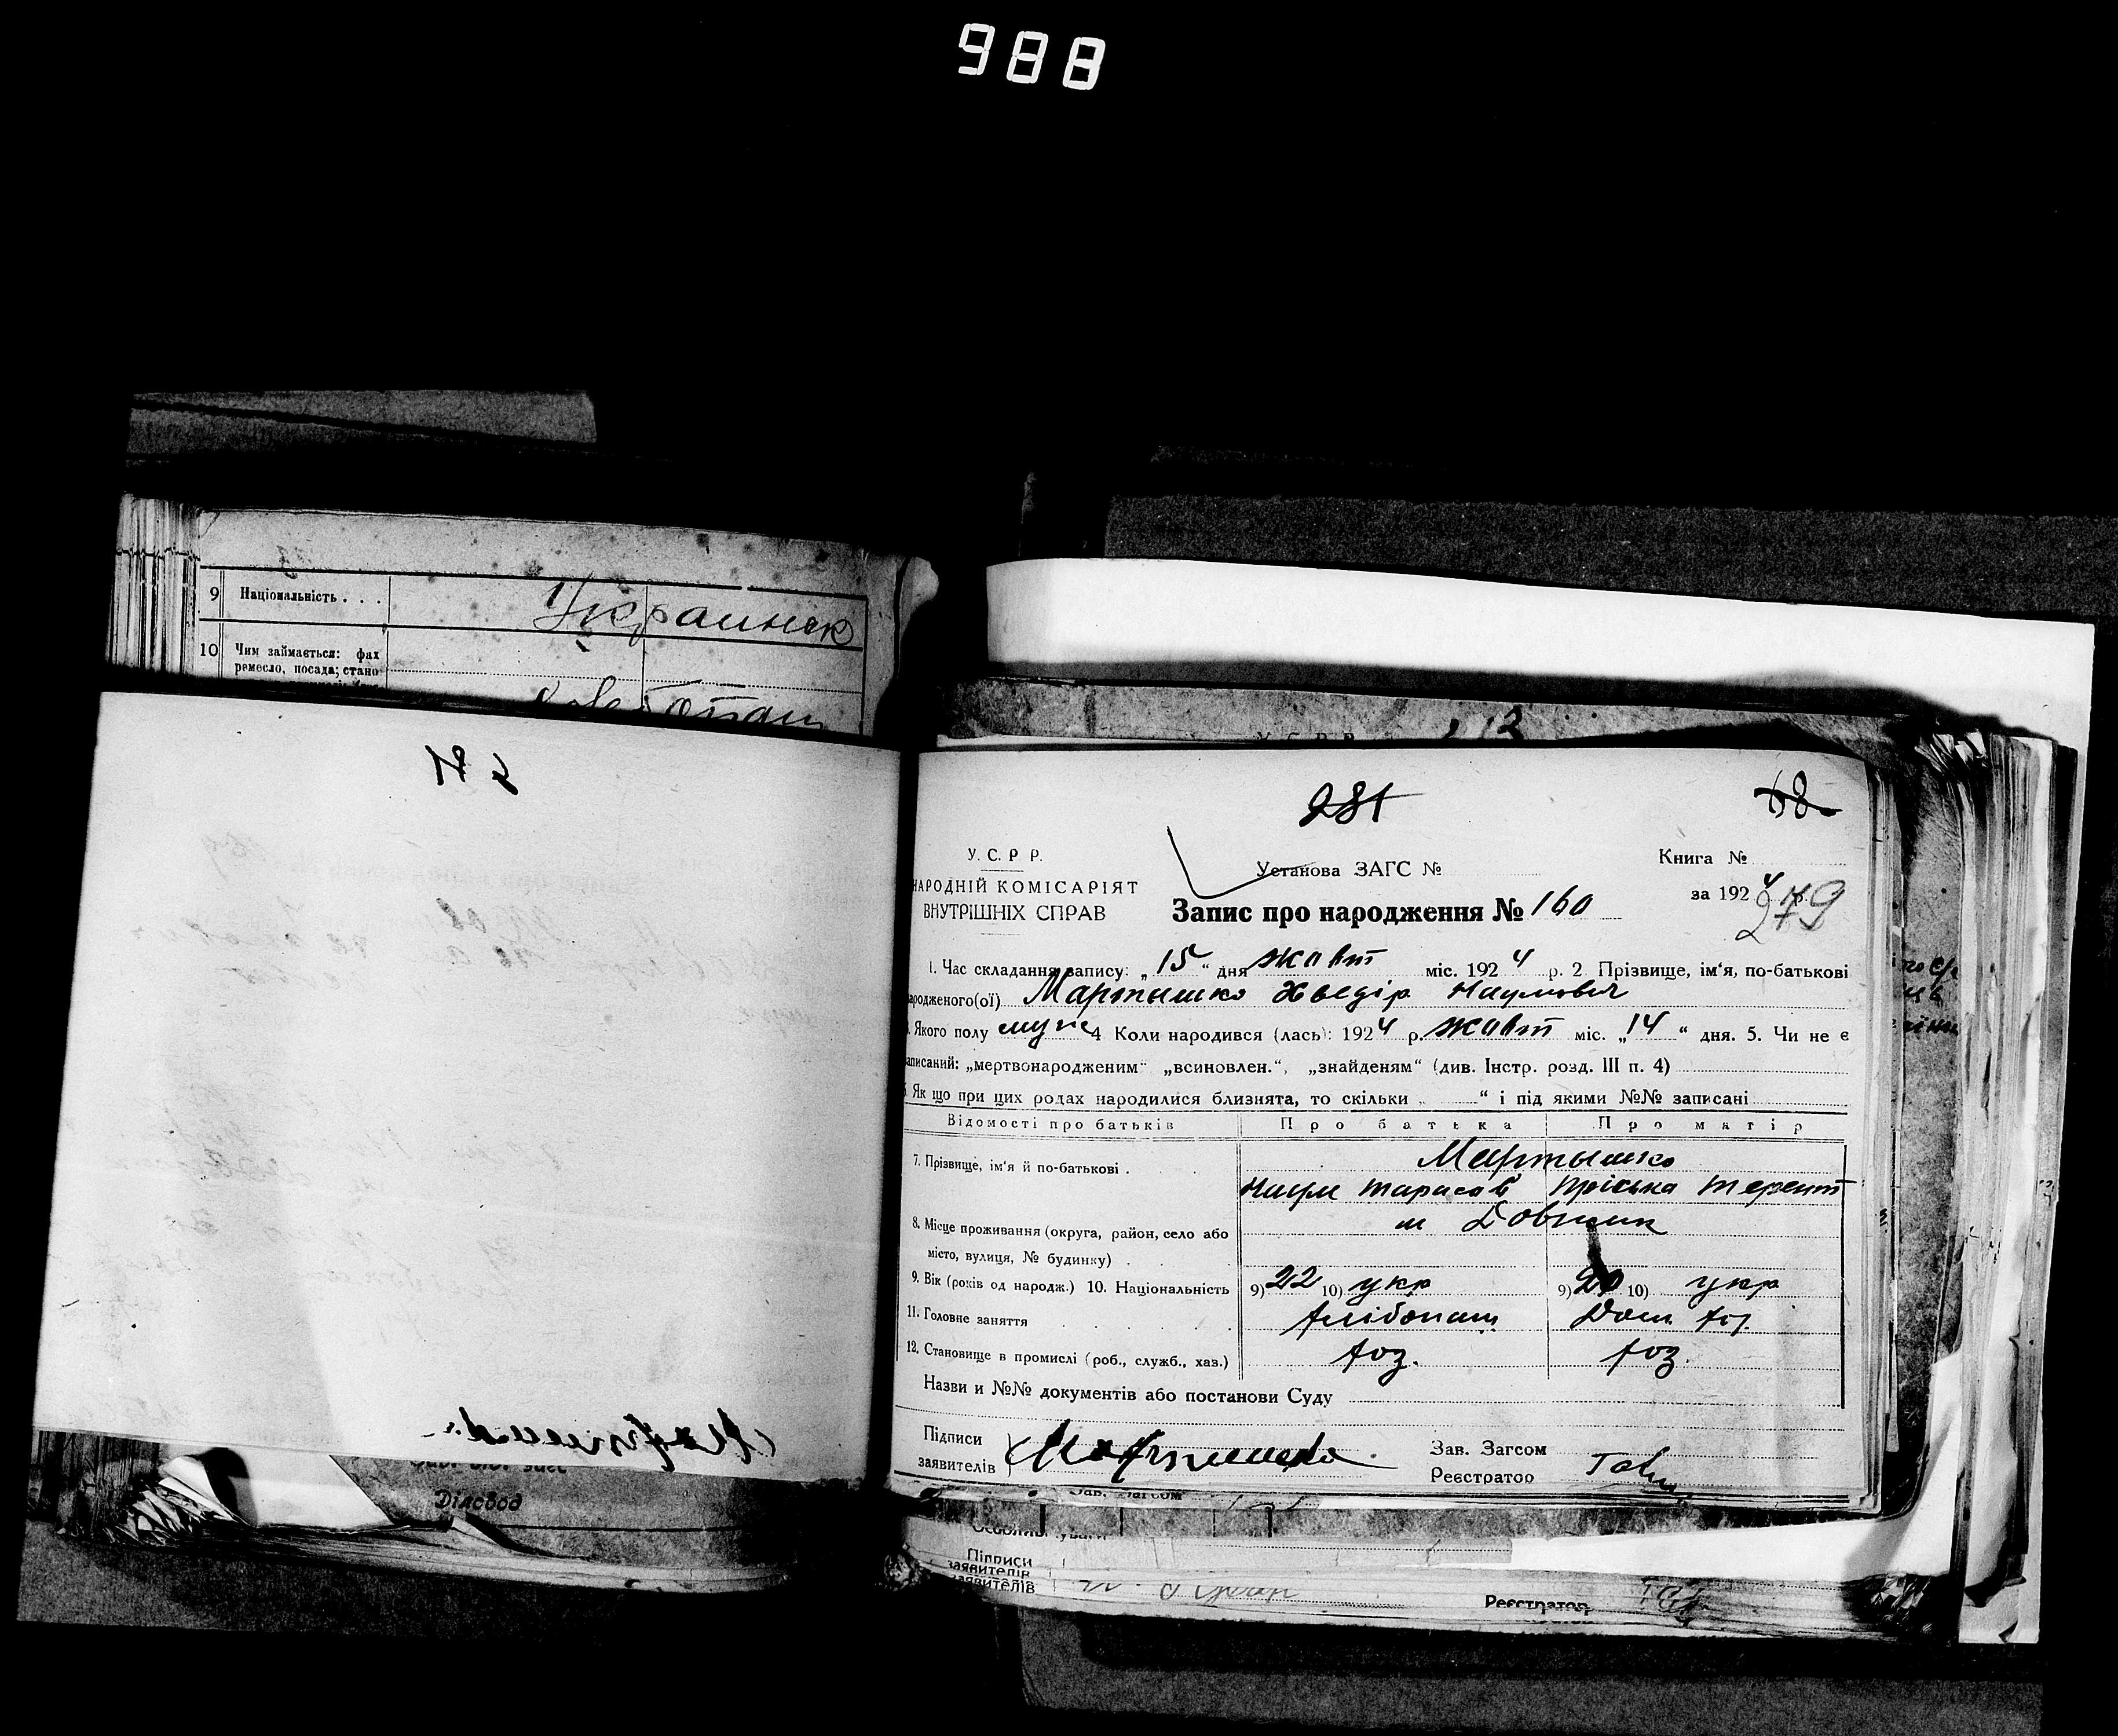 988
9 Національність . . . Украинск
10 Чим займається: фах
ремесло, посада; стано
№ 2
281
68
У. С. Р. Р.
НАРОДНІЙ КОМІСАРІЯТ
ВНУТРІШНІХ СПРАВ
Установа ЗАГС №
Книга №
за 1924 р.
279
Запис про народження № 160
1. Час складання запису: „15“ дня жовт міс. 1924 р. 2 Прізвище, ім'я, по-батькові
народженого(ої) Мартышко Хведір Наумович
Якого полу муж 4 Коли народився (лась): 1924 р. жовт міс. „14“ дня. 5. Чи не є
записаний: „мертвонародженим“ „всиновлен.“, „знайденям“ (див. Інстр. розд. III п. 4)
Як що при цих родах народилися близнята, то скільки „ “ і під якими №№ записані
Відомості про батьків Про батька Про матір
7. Прізвище, ім'я й по-батькові . Мартышко
Наум Тарасов Пріська Терент
8. Місце проживання (округа, район, село або м Довжик
місто, вулиця, № будинку) .
9. Вік (років од народж.) 10. Національність 9) 22 10) укр 9) 20 10) укр
11. Головне заняття Хлібопаш Дом хоз.
12. Становище в промислі (роб., служб., хаз.) хоз. хоз.
Назви и №№ документів або постанови Суду
Підписи
заявителів Мартишко
Зав. Загсом
Реєстратор
Діловод
Зав. Загсом
Підписи
заявителів
заявителів
Реєстратор